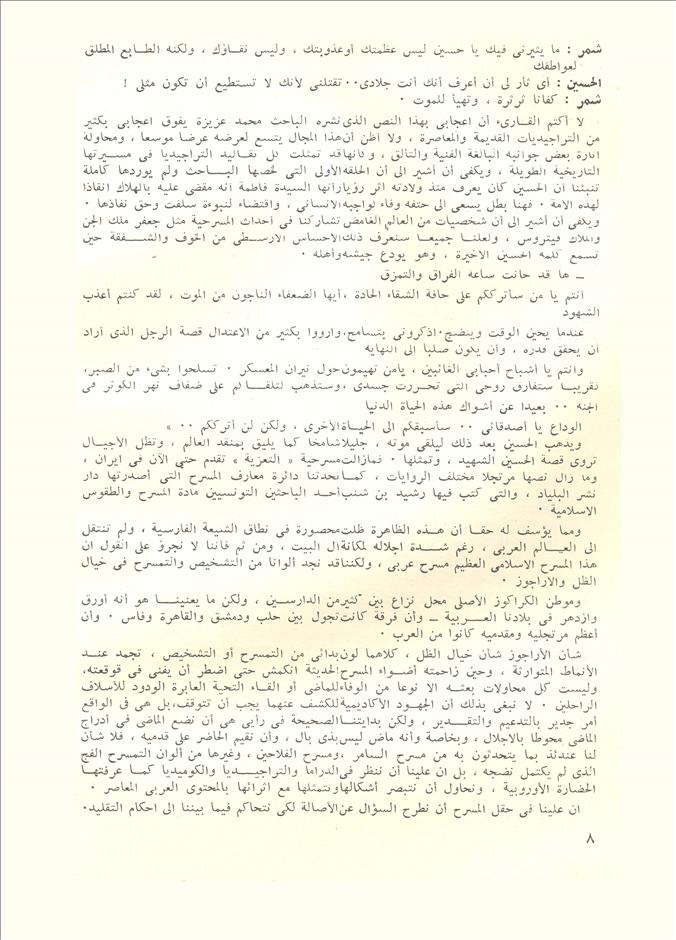 شمر : ما يثيرنى فيك يا حسين ليس عظمتك أوعذوبتك ، وليس نقاؤك ، ولكنه الطابع المطلق
لعواطفك
الحسين : أى ثأر لى أن أعرف أنك أنت جلادى٠٠ تقتلنى لأنك لا تستطيع أن تكون مثلى !
شمر : كفانا ثرثرة ، وتهيأ للموت ٠
لا أكتم القارىء أن اعجابى بهذا النص الذى نشره الباحث محمد عزيزة يفوق اعجابى بكثير
من التراجيديات القديمة والمعاصرة ، ولا أظن أن هذا المجال يتسع لعرضه عرضا موسعا ، ومحاولة
انارة بعض جوانبه البالغة الفنية والتألق ، وكأنها قد تمثلت كل تقاليد التراجيديا فى مسيرتها
التاريخية الطويلة ، ويكفى أن أشير الى أن الحلقة الأولى التى لخصها البــاحث ولم يوردها كاملة
تنبئنا أن الحسين كان يعرف منذ ولادته اثر رؤيا رأتها السيدة فاطمة أنه مقضى عليه بالهلاك انقاذا
لهذه الأمة ٠ فهنا بطل يسعى الى حتفه وفاء لواجبه الانسانى ، واقتضاء لنبوءة سلفت وحق نفاذها ٠
ويكفى أن أشير الى أن شخصيات من العالم الغامض تشاركنا فى أحداث المسرحية مثل جعفر ملك الجن
والملاك فيتروس ، ولعلنا جميعــا سنعرف ذلك الاحساس الأرسطى من الخوف والشــفقة حين
نسمع كلمة الحسين الأخيرة ، وهو يودع جيشه وأهله ٠
ــ ها قد حانت ساعة الفراق والتمزق
أنتم يا من سأترككم على حافة الشقاء الحادة ، أيها الضعفاء الناجون من الموت ، لقد كنتم أعذب
الشهود
عندما يحين الوقت وينضج٠اذكرونى بتسامح،وارووا بكثير من الاعتدال قصة الرجل الذى أراد
أن يحقق قدره ، وأن يكون صلبا الى النهاية
وأنتم يا أشباح أحبابى الغائبين ، يامن تهيمون حول نيران المعسكر ٠ تسلحوا بشىء من الصبر،
تقريبــا ستفارق روحى التى تحــررت جسدى ،وستذهب لتلقــاكم على ضفاف نهر الكوثر فى
الجنة ٠٠ بعيدا عن أشواك هذه الحياة الدنيا
الوداع يا أصدقائى ٠٠ سأسبقكم الى الحيــاة الأخرى ، ولكن لن أترككم ٠٠ »
ويذهب الحسين بعد ذلك ليلقى موته ، جليلا شامخا كما يليق بمنقذ العالم ، وتظل الأجيــال
تروى قصة الحسين الشهيد ، وتمثلها ٠ فمازالت مسرحية « التعزية » تقدم حتى الآن فى ايران ،
وما زال نصها مرتجلا مختلف الروايات ، كمــا تحدثنا دائرة معارف المسرح التى أصدرتها دار
نشر البلياد ، والتى كتب فيها رشيد بن شنب أحــد الباحثين التونسيين مادة المسرح والطقوس
الاسلامية ٠
ومما يؤسف له حقــا أن هــذه الظاهرة ظلت محصورة فى نطاق الشيعة الفارسية ، ولم تنتقل
الى العــالم العربى ، رغم شــدة اجلاله لمكانة ال البيت ، ومن ثم فاننا لا نجرؤ على القول ان
هذا المسرح الاسلامى العظيم مسرح عربى ، ولكننا قد نجد ألوانا من التشخيص والتمسرح فى خيال
الظل والأراجوز ٠
وموطن الكراكوز الأصلى محل نزاع بين كثير من الدارســين ، ولكن ما يعنينــا هو أنه أورق
وازدهر فى بلادنا العــربية ــ وأن فرقة كانت تجول بين حلب ودمشق والقاهرة وفاس ٠ وأن
أعظم مرتجليه ومقدميه كانوا من العرب ٠
شــأن الأراجوز شأن خيال الظل ، كلاهما لون بدائى من التمسرح أو التشخيص ، تجمد عنــد
الأنماط المتوارثة ، وحين زاحمته أضــواء المسرح الحديثة انكمش حتى اضطر أن يفنى فى قوقعته،
وليست كل محاولات بعثــه الا نوعا من الوفاء للماضى أو القــاء التحية العابرة الودود للأسلاف
الراحلين ٠ لا نبغى بذلك أن الجهــود الأكاديمية للكشف عنهما يجب أن تتوقف،بل هى فى الواقع
أمر جدير بالتدعيم والتقــدير ، ولكن بدايتنــا الصحيحة فى رأيى هى أن نضع الماضى فى أدراج
الماضى محوطا بالاجلال ، وبخاصة وأنه ماض ليس بذى بال ، وأن نقيم الحاضر على قدميه ، فلا شأن
لنا عندئذ بما يتحدثون به من مسرح السامر ،ومسرح الفلاحين ، وغيرها من ألوان التمسرح الفج
الذى لم يكتمل نضجه ، بل ان علينا أن ننظر فى الدراما والتراجيــديا والكوميديا كمــا عرفتهــا
الحضارة الأوروبية ، ونحاول أن نتبصر أشكالها ونتمثلها مع اثرائها بالمحتوى العربى المعاصر ٠
ان علينا فى حقل المسرح أن نطرح السؤال عن الأصالة لكى نتحاكم فيما بيننا الى احكام التقليد.
٨